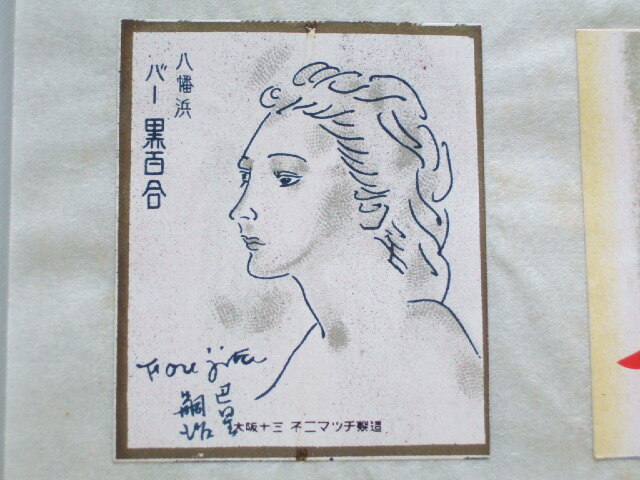 八幡浜
バー 黒百合
嗣治
巴里
大阪十三 不二マッチ製造